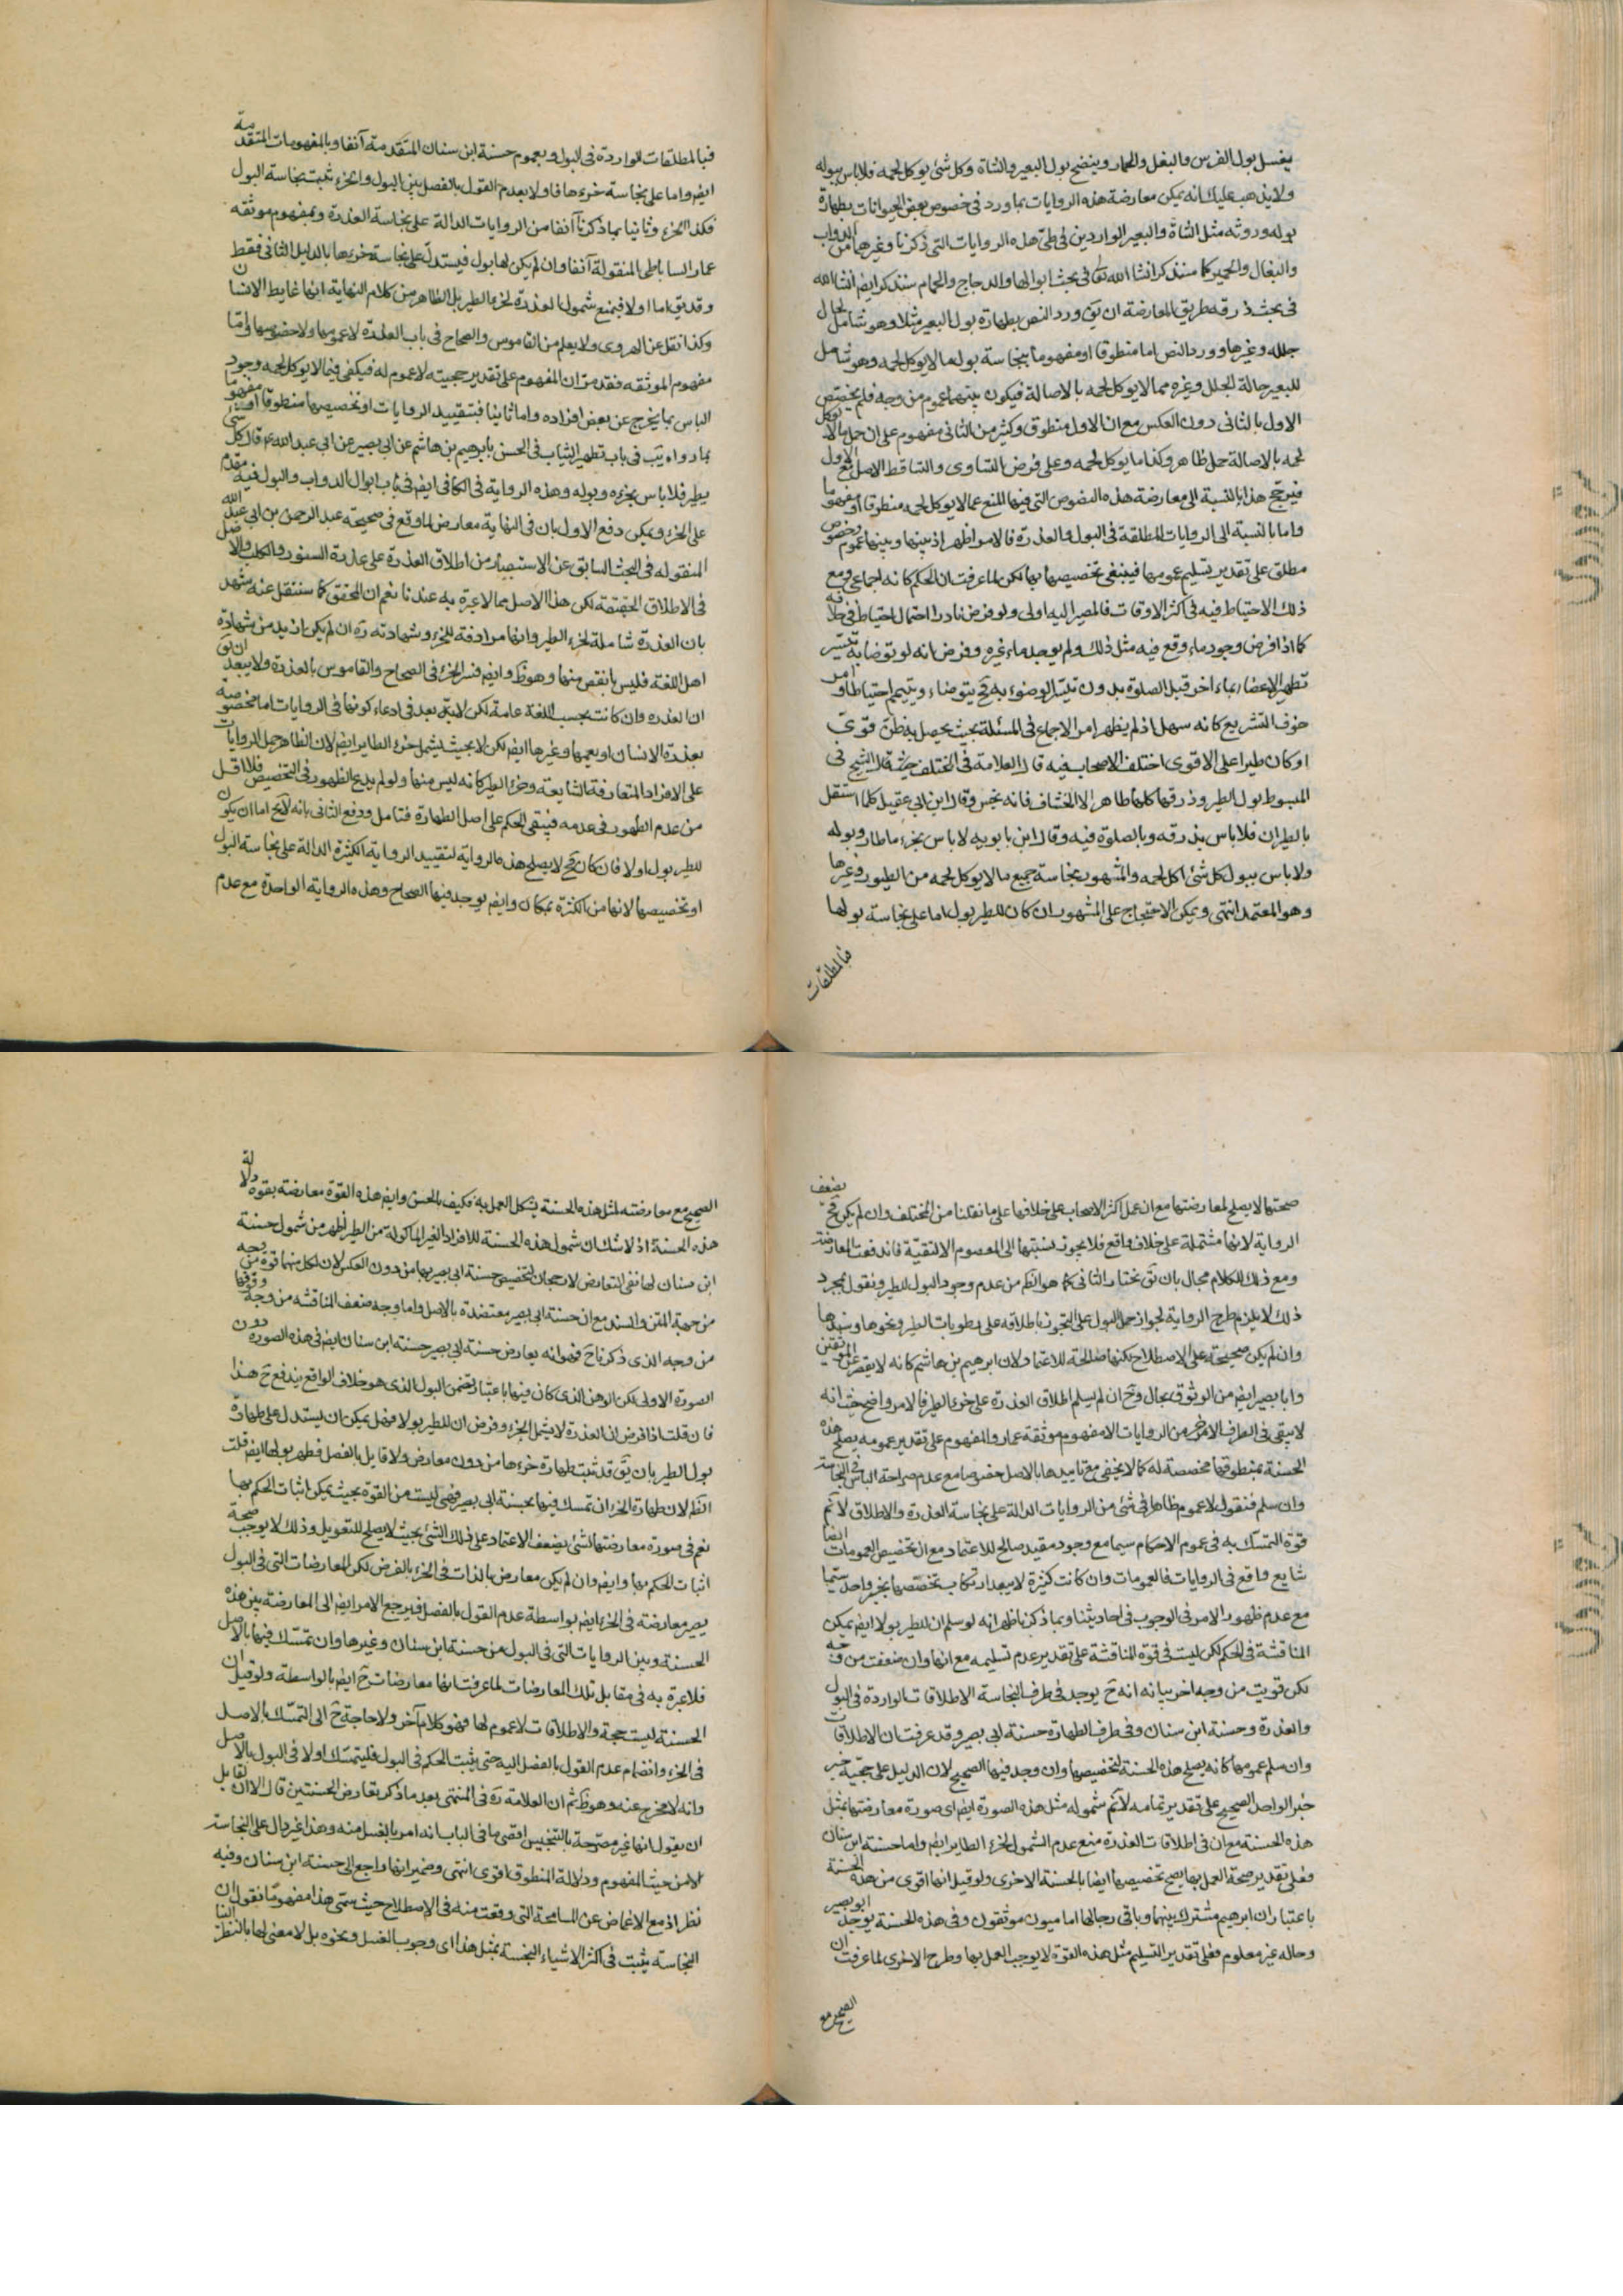 يغسل بول الفرس والبغل والحمار وينضح بول البعير والشاة وكل شئ يوكل لحمه فلا باس ببوله
ولا يذهب عليك انه يمكن معارضة هذه الروايات بما ورد فى خصوص بعض الحيوانات بطهارة
بوله وروثه مثل الشاة والبعير الواردين فى طىّ هذه الروايات التى ذكرنا وغيرهما من الدواب
والبغال والحمير كما سنذكر انشا الله تعا فى بحث ابوالها والدجاج والحمام سنذكر ايضا انشا الله
فى بحث ذرقه طريق المعارضة ان يق ورد النص بطهارة بول البعير مثلا وهو شامل لحال
جلله وغيرها وورد النص اما منطوقا او مفهوما بنجاسة بول ما لا يوكل لحمه وهو شامل
للبعير حالة الجلل وغيره مما لا يوكل لحمه بالاصالة فيكون بينهما عموم من وجه فلم يخصّص
الاول بالثانى دون العكس مع ان الاول منطوق وكثير من الثانى مفهوم على ان حمل ما لا يوكل
لحمه بالاصالة حمل ظاهر وكذا ما يوكل لحمه وعلى فرض التساوى والتساقط الاصل مع الاول
فيرجح هذا بالنسبة الى معارضة هذه النصوص التى فيها المنع عما لا يوكل لحمه منطوقا او مفهوما
واما بالنسبة الى الروايات المطلقة فى البول والعذرة فالامر اظهر اذ بينها وبينها عموم وخصوص
مطلق على تقدير تسليم عمومها فينبغى تخصيصها بها لكن لما عرفت ان الحكم كانه اجماعى ومع
ذلك الاحتياط فيه فى اكثر الاوقات فالمصير اليه اولى ولو فرض نادرا احتمال احتياط فى خلافه
كما اذا فرض وجود ماء وقع فيه مثل ذلك ولم يوجد ماء غيره وفرض انه لو توضا به تيسّر
تطهير الاعضاء بماء اخر قبل الصلوة بدون تيسّر الوضوء به فح يتوضاء ويتيمم احتياطا وامر
خوف التشريع كانه سهل اذ لم يظهر امر الاجماع فى المسئلة بحيث يحصل به ظنّ قوىّ
او كان طيرا على الاقوى اختلف الاصحاب فيه قال العلامة فى المختلف قال الشيخ فى
المبسوط بول الطير وذرقها كلها طاهر الا الخشاف فانه نجس وقال ابن ابى عقيل كلما استقل
بالطيران فلا باس بذرقه وبالصلوة فيه وقال ابن بابويه لا باس بخرء ما طار وبوله
ولا باس ببول كل شئ اكل لحمه والمشهور نجاسة جميع ما لا يوكل لحمه من الطيور وغيرها
وهو المعتمد انتهى ويمكن الاحتجاج على المشهور ان كان للطير بول اما على نجاسة بولها
فبالمطلقات
فبالمطلقات الواردة فى البول وبعموم حسنة ابن سنان المتقدمة آنفا وبالمفهومات المتقدمة
ايضا واما على نجاسة خرءها فاولا بعدم القول بالفصل بين البول والخرء ثبت نجاسة البول
فكذا الخرء وثانيا بما ذكرنا آنفا من الروايات الدالة على نجاسة العذرة وبمفهوم موثقه
عمار الساباطى المنقولة آنفا وان لم يكن لها بول فيستدلّ على نجاسة خرءها بالدليل الثانى فقط
وقد يق اما اولا فبمنع شمول العذرة لخرء الطير بل الظاهر من كلام النهاية انها غايط الانسان
وكذا نقل عن الهروى ولا يعلم من القاموس والصحاح فى باب العذرة لا عمومها ولا خصوصها وامّا
مفهوم الموثقه فقد مرّ ان المفهوم على تقدير حجيته لا عموم له فيكفى فيما لا يوكل لحمه وجود
الباس بما يخرج عن بعض افراده واما ثانيا فبتقييد الروايات او تخصيصها منطوقا او مفهوما
بما رواه يب فى باب تطهير الثياب فى الحسن بابرهيم بن هاشم عن ابى بصير عن ابى عبد الله ع قال كل شئ
يطير فلا باس بخرءه وبوله وهذه الرواية فى الكافى ايضا فى باب ابوال الدواب والبول فيه مقدّم
على الخرء ويمكن دفع الاول بان فى النهاية معارض لما وقع فى صحيحة عبد الرحمن بن ابى عبد الله
المنقوله فى البحث السابق عن الاستبصار من اطلاق العذرة على عذرة السنور والكلب والاصل
فى الاطلاق الحقيقة لكن هذا الاصل مما لا عبرة به عندنا نعم ان المحقق كما سننقل عنه شهد
بان العذرة شاملة لخرء الطير وانها مرادفة للخرء وشهادته ره ان لم يكن ازيد من شهادة
اهل اللغة فليس بانقص منها وهو ظ وايضا فسر الخرء فى الصحاح والقاموس بالعذرة ولا يبعد ان يق
ان العذره وان كانت بحسب اللغة عامة لكن لا يبعد فى ادعاء كونها فى الروايات اما مخصوصة
بعذرة الانسان او بعمها وغيرها ايضا لكن لا بحيث يشمل خرء الطاير ايضا لان الظاهر حمل الروايات
على الافراد المتعارفة الشايعة وخرء الطير كانه ليس منها ولو لم يدع الظهور فى التخصيص فلا اقل
من عدم الظهور فى عدمه فيبقى الحكم على اصل الطهارة فتامل ودفع الثانى بانه لا يخ اما ان يكون
للطير بول اولا فان كان فح لا يصلح هذه الرواية لتقييد الرواية الكثيرة الدالة على نجاسة البول
او تخصيصها لانها من الكثرة بمكان وايضا يوجد فيها الصحاح وهذه الرواية الواحدة مع عدم
صحتها لا يصلح لمعارضتها مع ان عمل اكثر الاصحاب على خلافها على ما نقلنا من المختلف وان لم يكن فح يضعف
الرواية لانها مشتملة على خلاف واقع فلا يجوز نسبتها الى المعصوم الا لتقيّة فاندفعت المعارضة
ومع ذلك للكلام مجال بان يق نختار الثانى كما هو الظ من عدم وجود البول للطير ونقول بمجرد
ذلك لا يلزم طرح الرواية لجواز حمل البول على التجوز باطلاقه على رطوبات الطير ونحوها وسندها
وان لم يكن صحيحة على الاصطلاح لكنها صالحة للاعتماد لان ابرهيم بن هاشم كانه لا يقصر عن الموثقين
وابا بصير ايضا من الوثوق بحال وح ان لم يسلم اطلاق العذرة على خرء الطير فالامر واضح حيث انه
لا يبقى فى الطرف الاخر من الروايات الا مفهوم موثقة عمار والمفهوم على تقدير عمومه يصلح هذه
الحسنة بمنطوقها مخصصة له كما لا يخفى مع تاييدها بالاصل خصوصا مع عدم صراحة الباس فى النجاسة
وان سلم فنقول لا عموم ظاهرا فى شئ من الروايات الدالة على نجاسة العذرة والاطلاق لا نم
قوة التمسك به فى عموم الاحكام سيما مع وجود مقيد صالح للاعتماد مع ان تخصيص العمومات ايضا
شايع واقع فى الروايات فالعمومات وان كانت كثيرة لا يبعد ارتكاب تخصّصها بخبر واحد سيّما
مع عدم ظهور الامر فى الوجوب فى احاديثنا وبما ذكرنا ظهر انه لو سلم ان للطير بولا ايضا يمكن
المناقشة فى الحكم لكن ليست فى قوة المناقشة على تقدير عدم تسليمه مع انها وان ضعفت من وجه
لكن قويت من وجه اخر بيانه انه ح يوجد فى طرف النجاسة الاطلاقات الواردة فى البول
والعذرة وحسنة ابن سنان وفى طرف الطهارة حسنة ابى بصير وقد عرفت ان الاطلاقات
وان سلم عمومها كانه يصلح هذه الحسنة لتخصيصها وان وجد فيها الصحيح لان الدليل على حجية خبر
خبر الواحد الصحيح على تقدير تمامه لا نم شموله مثل هذه الصورة ايضا اى صورة معارضتها بمثل
هذه الحسنة مع ان فى اطلاقات العذرة منع عدم الشمول لخرء الطاير ايضا واما حسنة ابن سنان
فعلى تقدير صحة العمل بها يصح تخصيصها ايضا بالحسنة الاخرى ولو قيل انها اقوى من هذه الحسنة
باعتبار ان ابرهيم مشترك بينهما وباقى رجالها اماميون موثقون وفى هذه الحسنة يوجد ابو بصير
وحاله غير معلوم فعلى تقدير التسليم مثل هذه القوة لا يوجب العمل بها وطرح الاخرى لما عرفت ان
الصحيح مع
الصحيح مع معارضته لمثل هذه الحسنة يشكل العمل به فكيف بالحسن وايضا هذه القوة معارضة بقوة دلالة
هذه الحسنة اذ لا شك ان شمول هذه الحسنة للافراد الغير الماكولة من الطير اظهر من شمول حسنة
ابن سنان لها نفى التعارض لا رجحان لتخصيص حسنة ابى بصير بها من دون العكس لان لكل منهما قوة من وجه
من جهة المتن والسند مع ان حسنة ابى بصير معتضدة بالاصل واما وجه ضعف المناقشه من وجه وقوتها
من وجه الذى ذكرنا ح فهو انه يعارض حسنة ابى بصير حسنة ابن سنان ايضا فى هذه الصورة دون
الصورة الاولى لكن الوهن الذى كان فيها باعتبار تضمن البول الذى هو خلاف الواقع يندفع ح هذا
فان قلت اذا فرض ان العذرة لا يشمل الخرء وفرض ان للطير بولا فهل يمكن ان يستدل على طهارة
بول الطير بان يق قد ثبت طهارة خرءها من دون معارض ولا قايل بالفصل فطهر بولها ايضا قلت
الظ لا لان طهارة الخرء ان تمسك فيها بحسنة ابى بصير فهى ليست من القوة بحيث يمكن اثبات الحكم بها
نعم فى صورة معارضتها لشئ يضعف الاعتماد على ذلك الشئ بحيث لا يصلح للتعويل وذلك لا يوجب صحة
اثبات الحكم بها وايضا وان لم يكن معارض بالذات فى الخرء بالفرض لكن المعارضات التى فى البول
يصير معارضته فى الخرء ايضا بواسطة عدم القول بالفصل فيرجع الامر ايضا الى المعارضة بين هذه
الحسنة وبين الروايات التى فى البول من حسنة ابن سنان وغيرها وان تمسّك فيها بالاصل
فلا عبرة به فى مقابل تلك المعارضات لما عرفت انها معارضات ح ايضا بالواسطة ولو قيل ان
الحسنة ليست حجة والاطلاقات لا عموم لها فهو كلام آخر ولا حاجة ح الى التمسّك بالاصل
فى الخرء وانضمام عدم القول بالفصل اليه حتى يثبت الحكم فى البول فليتمسّك اولا فى البول بالاصل
وانه لا مخرج عنه وهو ظ ثم ان العلامة ره فى المنتهى بعد ما ذكر تعارض الحسنتين قال الا ان لقايل
ان يقول انها غير مصرّحة بالتنجيس اقصى ما فى الباب انه امر بالغسل منه وهذا غير دال على النجاسة
الا من حيث المفهوم ودلالة المنطوق اقوى انتهى وضمير انها راجع الى حسنة ابن سنان وفيه
نظر اذ مع الاغماض عن المسامحة التى وقعت منه فى الاصطلاح حيث سمّى هذا مفهوما نقول ان
النجاسة يثبت فى اكثر الاشياء النجسة بمثل هذا اى وجوب الغسل ونحوه بل لا معنى لها بالنظر